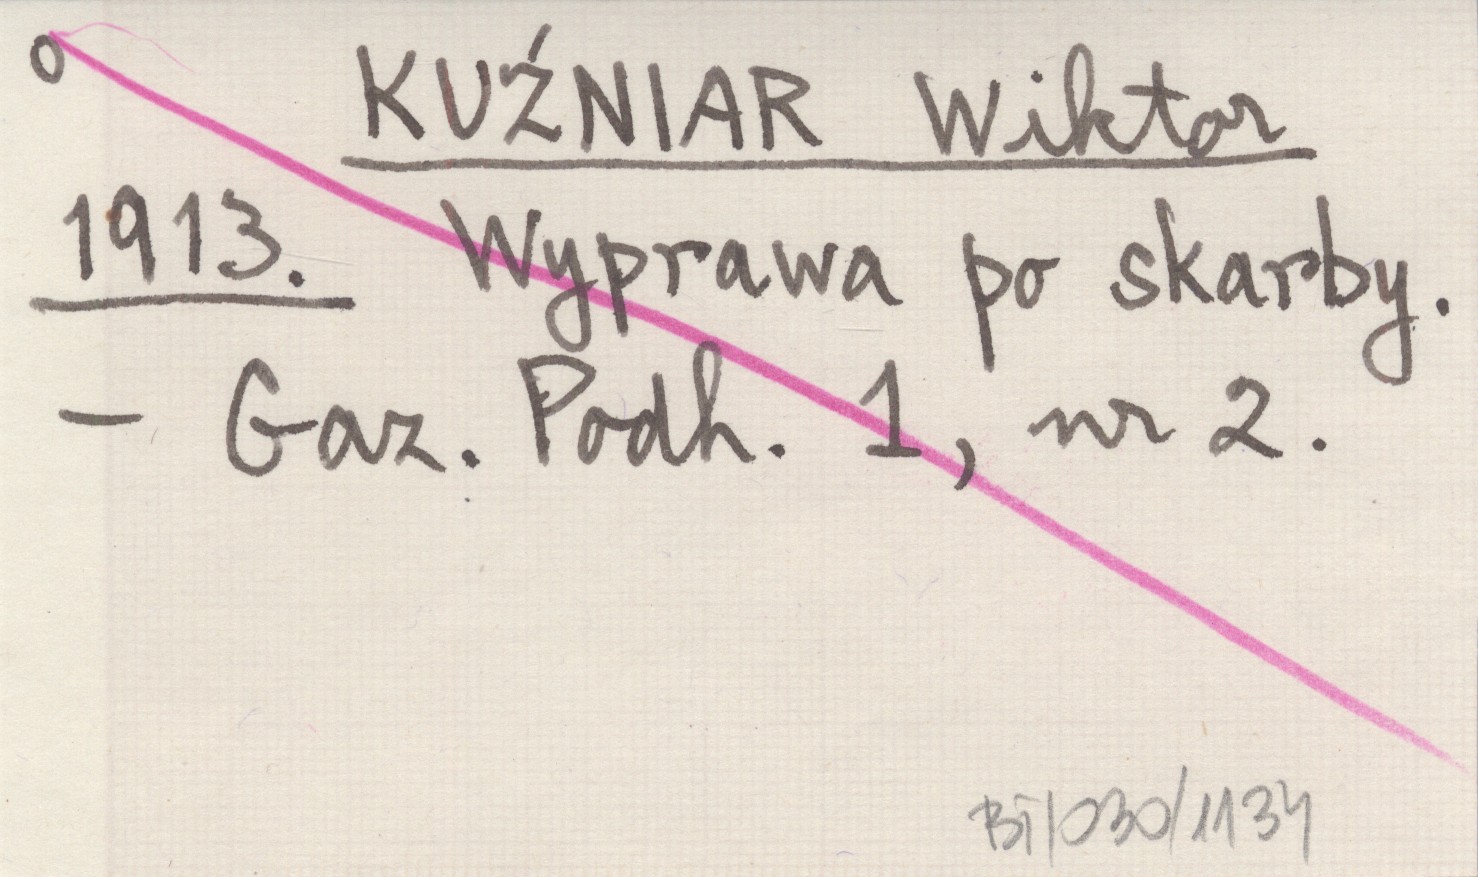 o KUŹNIAR Wiktor
1913. Wyprawa po skarby.
– Gaz. Podh. 1, nr 2.
BT/030/1134